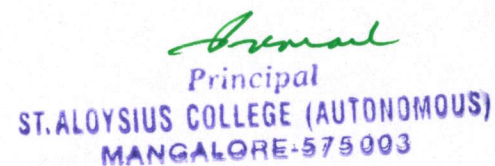 Principal
ST. ALOYSIUS COLLEGE (AUTONOMOUS)
MANGALORE-575003